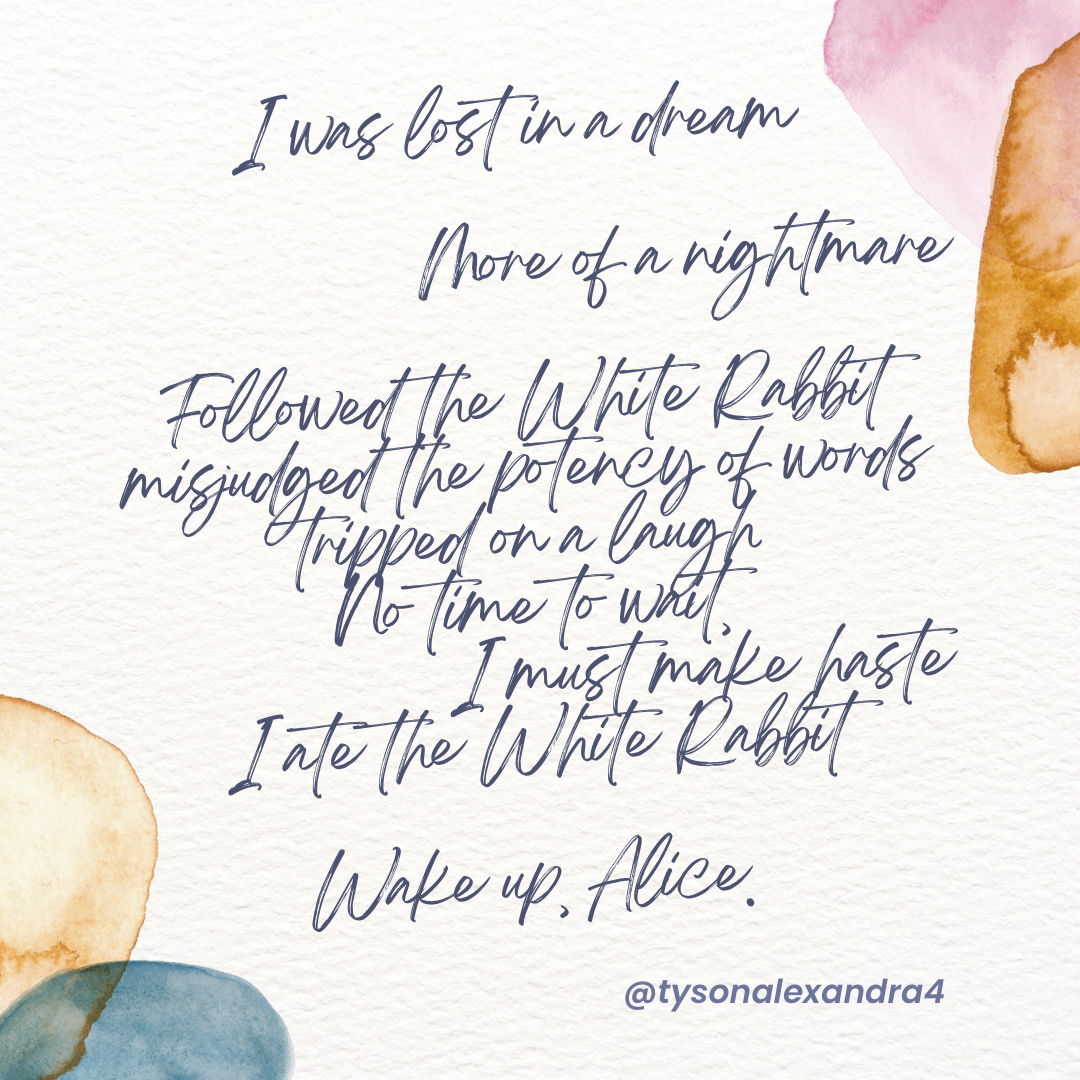 I was lost in a dream
More of a nightmare
Followed the White Rabbit
misjudged the potency of words
tripped on a laugh
No time to wait,
I must make haste
I ate the White Rabbit
Wake up, Alice.
@tysonalexandra4